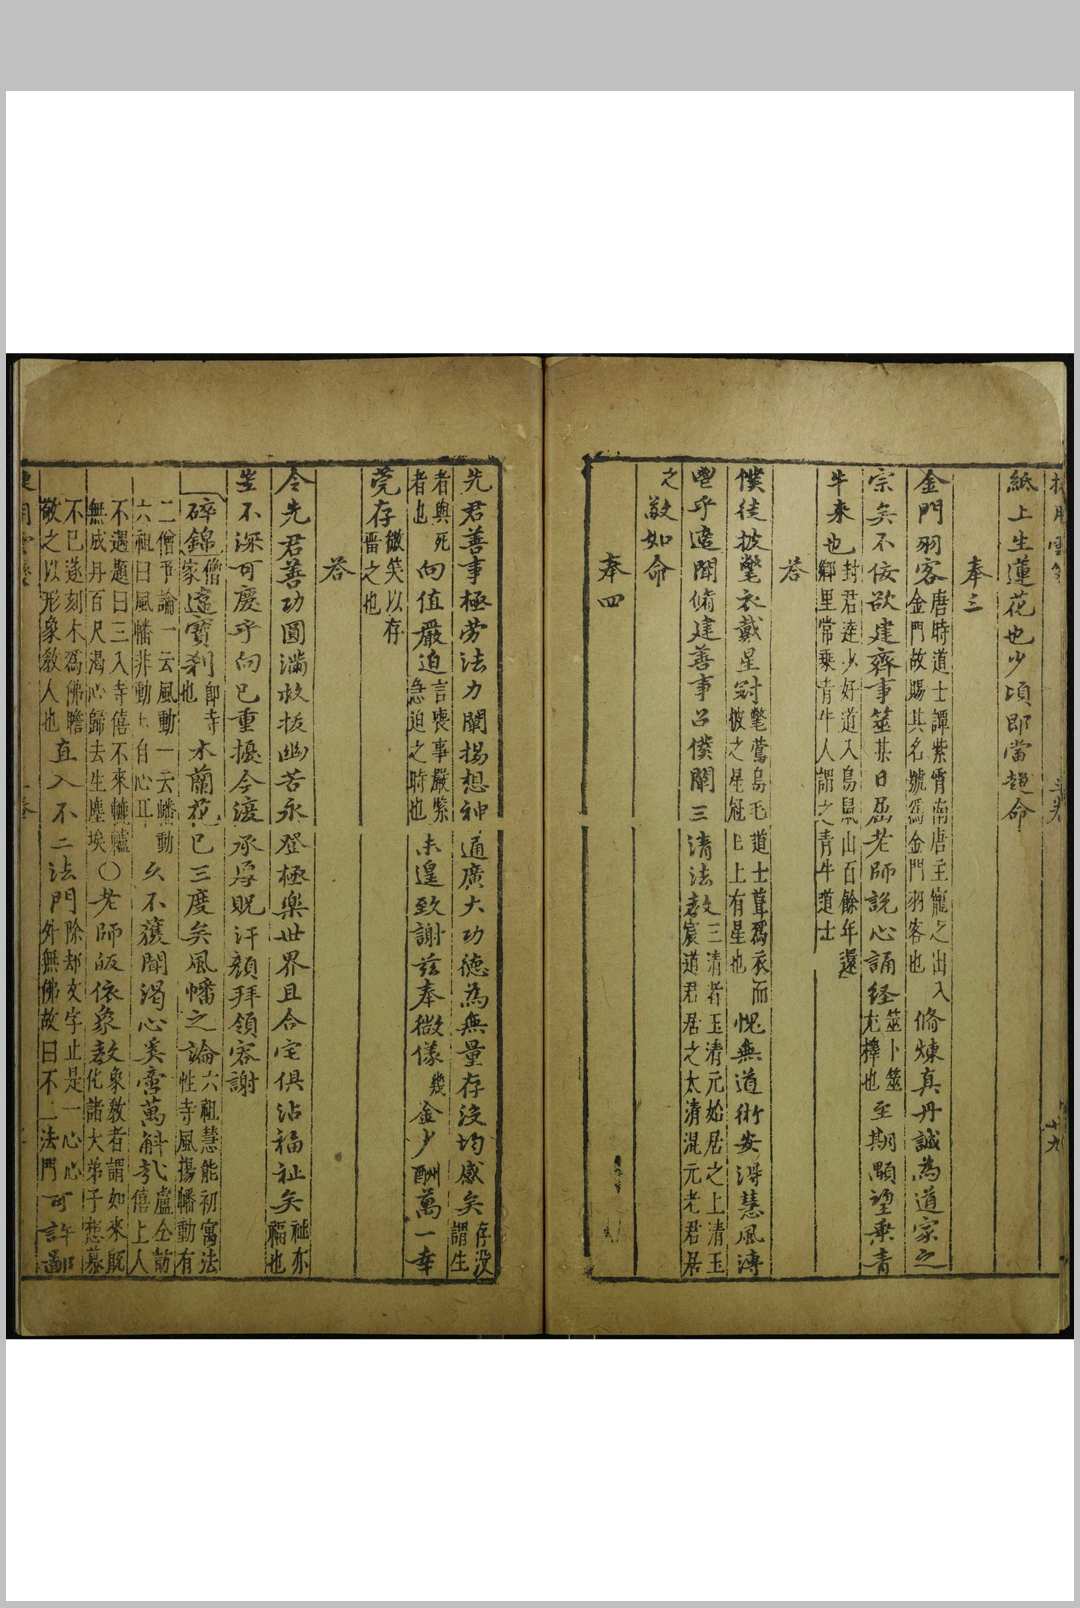 紙上生蓮花也少頃即當趨命
奉三
金門羽客唐時道士譚紫霄南唐主寵之出入金門故賜其名號為金門羽客也脩煉真丹誠為道家之
宗矣不佞欲建齊事筮某日屈老師說心誦経筮卜筮尤擇也至期顒望乘青
牛来也封君達少好道入鳥鼠山百餘年還鄉里常乘青牛人謂之青牛道士
答
僕徒披氅衣戴星冠氅鶖鳥毛道士葺為衣而披之星冠上有星也愧無道術安淂慧風溥
曁乎遠聞脩建善事召僕闡三清法教三清者玉清元始居之上清玉宸道君居之太清混元老君居
之敢如命
奉四
先君善事極劳法力闡揚想神通廣大功德為無量存没均感矣存没謂生
者與死者也向值嚴迫言喪事嚴紫急迫之時也未遑致謝茲奉微儀幾金少酬萬一幸
莞存微笑以存畱之也
答
令先君善功圓滿救拔幽苦永登極楽世界且合宅俱沾福祉矣祉亦福也
豈不深可慶乎向已重擾今渡承厚貺汗顔拜領容謝
碎錦僧家遠寳刹卽寺也木蘭花已三度矣風幡之論六祖慧能初寓法性寺風揚幡動有
二僧爭論一云風動一云幡動六祖曰風幡非動自心耳久不獲聞渴心奚啻萬斛哉盧仝訪僖上人
不遇題曰三入寺僖不來轆轤無成丹百尺渴心歸去生塵埃○老師皈依象教象教者謂如来既化諸大弟子想慕
不已遂刻木為佛瞻敬之以形象教人也直入不二法門除却文字止是一心心外無佛故曰不二法門可許鄙